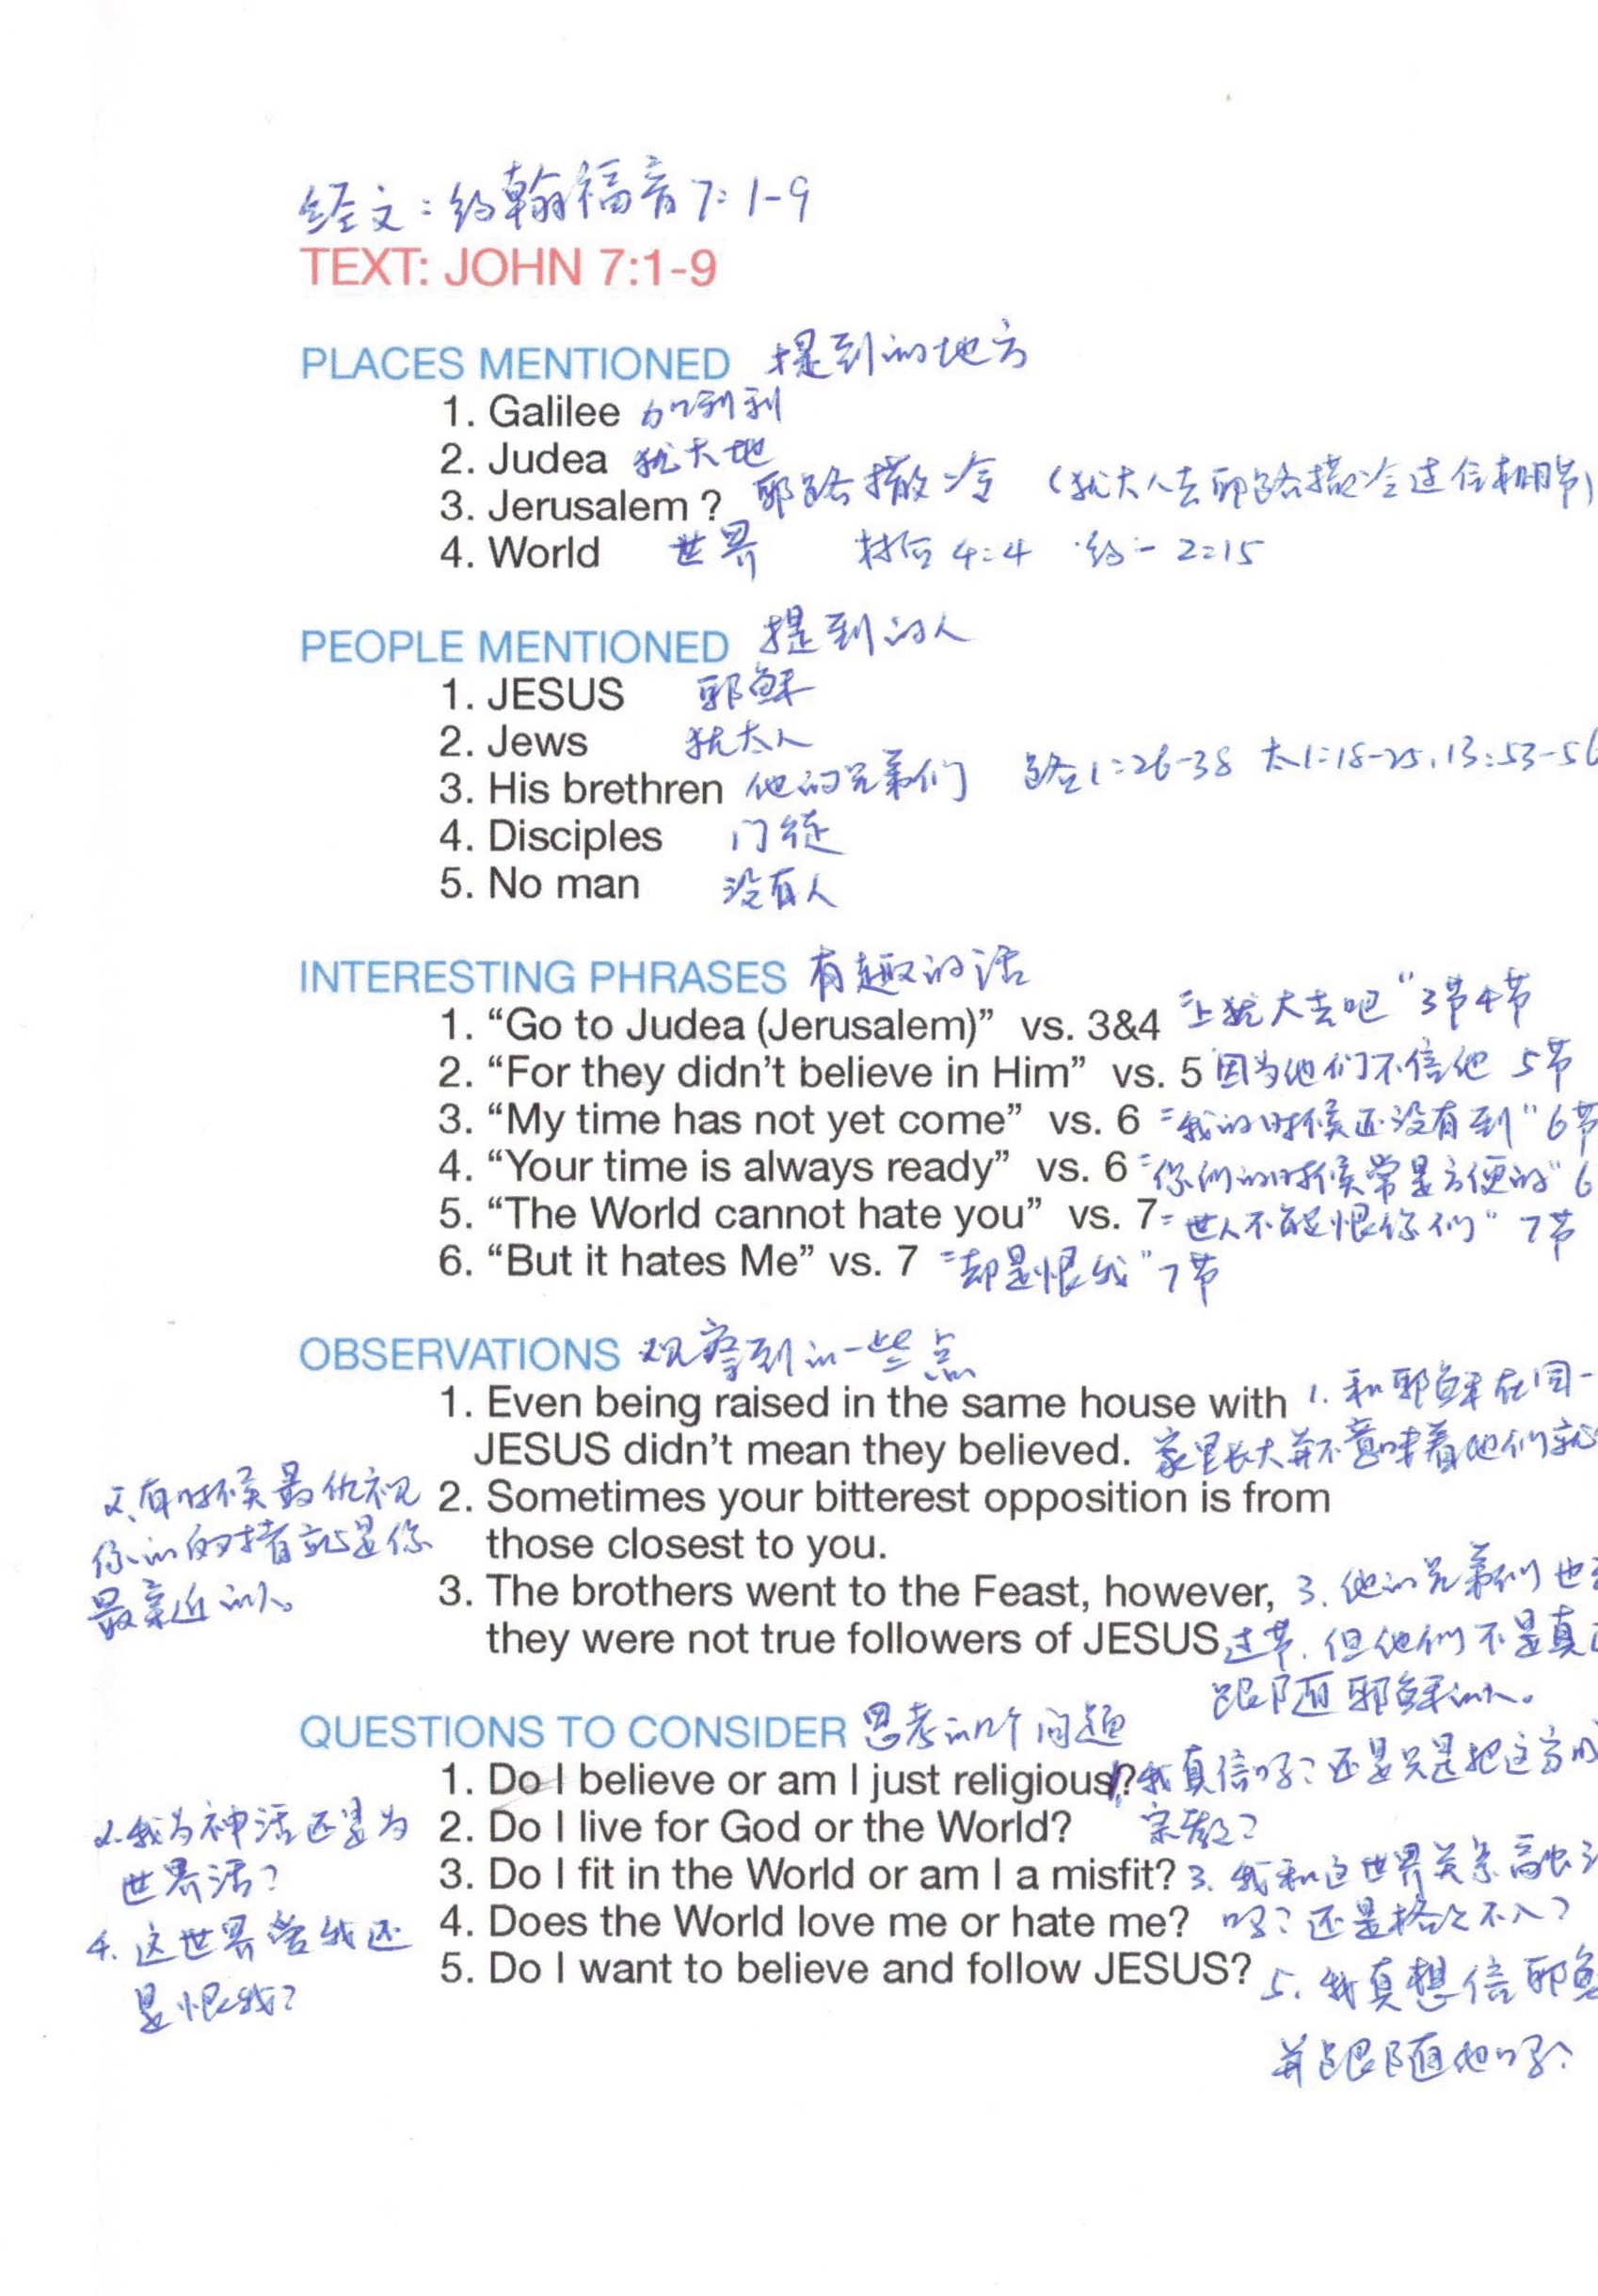 经文：约翰福音7：1-9
TEXT: JOHN 7:1-9
PLACES MENTIONED 提到的地方
1. Galilee 加利利
2. Judea 犹大地
3. Jerusalem ? 耶路撒冷 （犹大人去耶路撒冷过住棚节）
4. World 世界 林后4：4 约一 2：15
PEOPLE MENTIONED 提到的人
1. JESUS 耶稣
2. Jews 犹太人
3. His brethren 他的兄弟们 路1：26-38 太1：18-25，13：53-56
4. Disciples 门徒
5. No man 没有人
INTERESTING PHRASES 有趣的话
1. “Go to Judea (Jerusalem)” vs. 3&4 “上犹大去吧” 3节4节
2. “For they didn’t believe in Him” vs. 5 因为他们不信他 5节
3. “My time has not yet come” vs. 6 “我的时候还没有到” 6节
4. “Your time is always ready” vs. 6 “你们的时候常是方便的” 6
5. “The World cannot hate you” vs. 7 “世人不能恨你们” 7节
6. “But it hates Me” vs. 7 “却是恨我” 7节
OBSERVATIONS 观察到的一些点
1. Even being raised in the same house with 1. 和耶稣在同一
JESUS didn’t mean they believed. 家里长大并不意味着他们就
2. 有时候最仇视 2. Sometimes your bitterest opposition is from
你的 就是你 those closest to you.
最亲近的人。 3. The brothers went to the Feast, however, 3. 他的兄弟们也
they were not true followers of JESUS 过节，但他们不是真
跟随耶稣的人。
QUESTIONS TO CONSIDER 思考的几个问题
1. Do I believe or am I just religious? 我真信吗？还是只是把这方
2. 我为神活还是为 2. Do I live for God or the World? 宗教？
世界活？ 3. Do I fit in the World or am I a misfit? 3. 我和这世界关系融
4. 这世界爱我还 4. Does the World love me or hate me? 吗？还是格格不入？
是恨我？ 5. Do I want to believe and follow JESUS? 5. 我真想信耶稣
并跟随他吗？